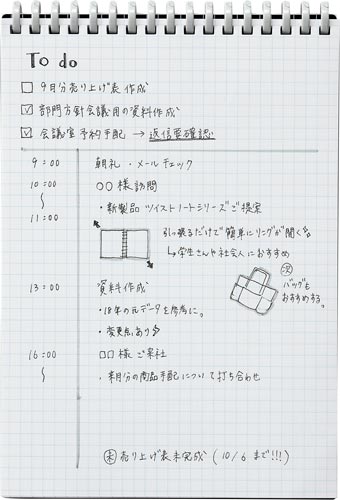 To do
□ 9月分売り上げ表 作成
☑ 部門方針会議用の資料作成
☑ 会議室予約手配 → 返信要確認
9:00 朝礼・メールチェック
10:00 ○○様訪問
〜 ・新製品 ツイストノートシリーズご提案
11:00
引っ張るだけで簡単にリングが開く
↳ 学生さんや社会人におすすめ
次 バッグも
おすすめする。
13:00 資料作成
・18年の元データを参考に。
・変更点あり
16:00 □□様 ご来社
〜 ・来月分の商品手配について打ち合わせ
未 売り上げ表未完成 (10/6 まで!!!)